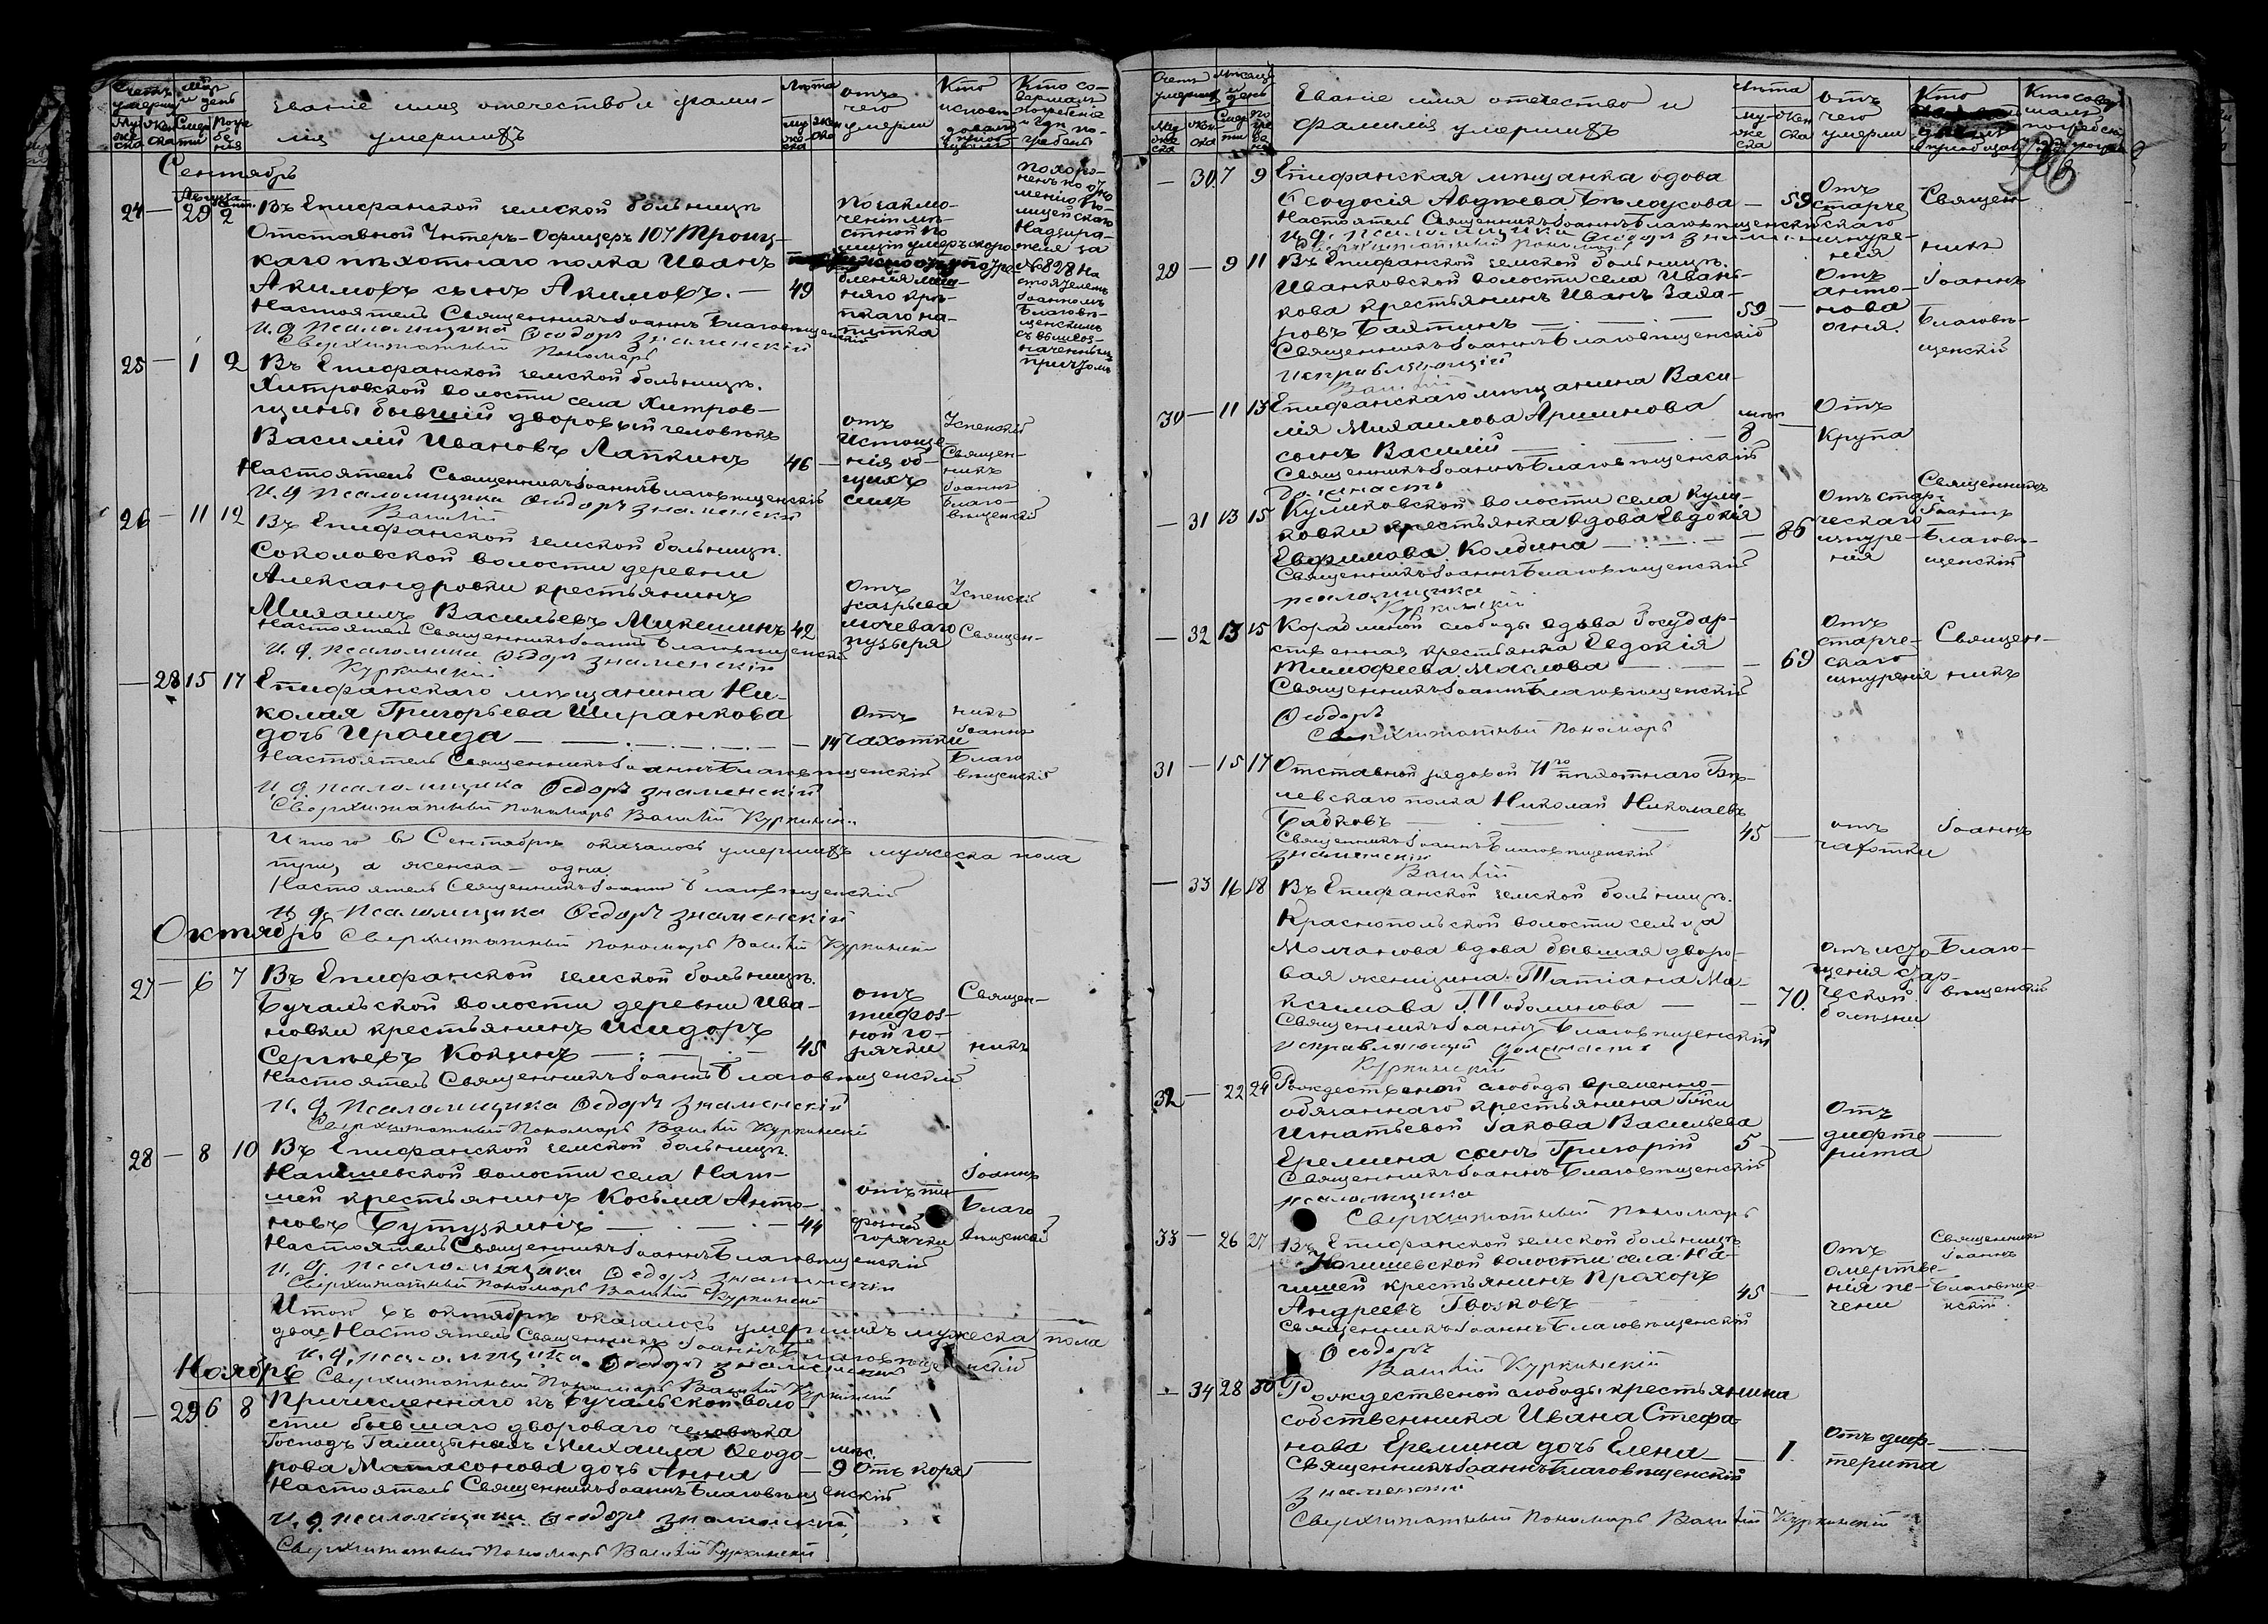 Счетъ умершихъ
Мѣс. и день
Званіе имя отечество и фами-
лія умершихъ
Лѣта
отъ чего умерли
Кто исповѣдовалъ
Кто совершалъ погребеніе и гдѣ погребены
Сентябрь
Августа Сент.
24 — 29 2 Въ Епифанской земской больницѣ
Отставной Унтеръ-Офицеръ 107 Троиц-
каго пѣхотнаго полка Иванъ
Акимовъ сынъ Акимовъ. — 49
Настоятель Священникъ Іоаннъ Благовѣщенскій
И. д. псаломщика Ѳеодоръ Знаменскій
Сверхштатный Пономарь
По заклю-
ченію мѣ-
стной по-
лиціи умеръ скоро
бленія
няго крѣ-
пкаго на-
питка
Похоро-
ненъ по отно
шенію По-
лицейскаго
Надзира-
теля за
№ 828 На
стоятелемъ
Іоанномъ
Благовѣ-
щенскимъ
съ вышеоз-
наченнымъ
причтомъ
25 — 1 2 Въ Епифанской земской больницѣ.
Хитровской волости села Хитров-
щины бывшій дворовый человѣкъ
Василій Ивановъ Лапкинъ 46 —
Настоятель Священникъ Іоаннъ Благовѣщенскій
И. д. псаломщика Ѳеодоръ Знаменскій
Василій
отъ
Истоще-
нія об-
щихъ
силъ
Успенскій
Священ-
никъ
Іоаннъ
Благо-
вѣщенскій
26 — 11 12 Въ Епифанской земской больницѣ.
Соколовской волости деревни
Александровки крестьянинъ
Михаилъ Васильевъ Микешинъ 42
Настоятель Священникъ Іоаннъ Благовѣщенскій
И. д. псаломщика Ѳедоръ Знаменскій
Куркинскій
Отъ
разрыва
мочеваго
пузыря
Успенскій
Священ-
— 28 15 17 Епифанскаго мѣщанина Ни-
колая Григорьева Ширанкова
дочь Ираида — — — 14
Настоятель Священникъ Іоаннъ Благовѣщенскій
И. д. псаломщика Ѳедоръ Знаменскій
Сверхштатный Пономарь Василій Куркинскій
Отъ
чахотки
никъ
Іоаннъ
Благо
вѣщенскій
Итого в Сентябрѣ оказалось умершихъ мужеска пола
три, а женска — одна
Настоятель Священникъ Іоаннъ Благовѣщенскій
И. д. Псаломщика Ѳедоръ Знаменскій
Октябрь Сверхштатный Пономарь Василій Куркинскій
27 — 6 7 Въ Епифанской земской больницѣ.
Бучальской волости деревни Ива-
новки крестьянинъ Исидоръ
Сергѣевъ Копинъ — 45
Настоятель Священникъ Іоаннъ Благовѣщенскій
И. д. Псаломщика Ѳедоръ Знаменскій
Сверхштатный Пономарь Василій Куркинскій
отъ
тифоз-
ной го-
рячки
Священ-
никъ
28 — 8 10 Въ Епифанской земской больницѣ.
Нагишевской волости села Наги-
шей крестьянинъ Косьма Анто-
новъ Бутузкинъ — 44
Настоятель Священникъ Іоаннъ Благовѣщенскій
И. д. псаломщика Ѳедоръ Знаменскій
Сверхштатный Пономарь Василій Куркинскій
отъ ти
фозной
горячки
Іоаннъ
Благо
вѣщенскій
Итого въ октябрѣ оказалось умершихъ мужеска пола
двое Настоятель Священникъ Іоаннъ Благовѣщенскій
И. д. псаломщика Ѳеодоръ Знаменскій
Ноябрь Сверхштатный Пономарь Василій Куркинскій
— 29 6 8 Причисленнаго къ Бучальской воло
сти бывшаго двороваго человѣка
Господъ Галицыныхъ Михаила Ѳеодо-
рова Матасонова дочь Анна — мѣс. 9 Отъ коря —
Настоятель Священникъ Іоаннъ Благовѣщенскій
И. д. псаломщика Ѳеодоръ Знаменскій
Сверхштатный Пономарь Василій Куркинскій
Счетъ умершихъ
мѣсяцъ и день
Званіе имя отечество и
фамилія умершихъ
лѣта
отъ чего умерли
Кто
96
— 30 7 9 Епифанская мѣщанка вдова
Ѳеодосія Авдѣева Бѣлоусова — 59
Настоятель Священникъ Іоаннъ Благовѣщенскій
И. д. псаломщика Ѳеодоръ Знаменскій
Сверхштатный Пономарь
Отъ
старче
скаго
изнуре-
нія
Священ-
никъ
29 — 9 11 Въ Епифанской земской больницѣ.
Иванковской волости села Ивань-
кова крестьянинъ Иванъ Заха-
ровъ Баятинъ — 59 —
Священникъ Іоаннъ Благовѣщенскій
Исправляющій
Василій
Отъ
анто-
нова
огня.
Іоаннъ
Благовѣ-
щенскій
30 — 11 13 Епифанскаго мѣщанина Васи-
лія Михаилова Аршинова
сынъ Василій — мѣс. 8 —
Священникъ Іоаннъ Благовѣщенскій
должность
Отъ
крупа
— 31 13 15 Куликовской волости села Кули-
ковки крестьянка вдова Евдокія
Евфимова Колдина — 86
Священникъ Іоаннъ Благовѣщенскій
псаломщика
Куркинскій
Отъ стар-
ческаго
изнуре-
нія
Священникъ
Іоаннъ
Благовѣ-
щенскій
— 32 13 15 Корабликой слободы вдова Государ-
ственная крестьянка Евдокія
Тимофеева Маслова — 69
Священникъ Іоаннъ Благовѣщенскій
Ѳеодоръ
Сверхштатный Пономарь
Отъ
старче-
скаго
изнуренія
Священ-
никъ
31 — 15 17 Отставной рядовой 71го пѣхотнаго Бѣ-
левскаго полка Николай Николаевъ
Бабковъ — 45 —
Священникъ Іоаннъ Благовѣщенскій
Знаменскій
Василій
отъ
чахотки
Іоаннъ
— 33 16 18 Въ Епифанской земской больницѣ.
Краснопольской волости сельца
Молчанова вдова бывшая дворо-
вая женщина Татіана Ма-
ксимова Тоболинова — 70.
Священникъ Іоаннъ Благовѣщенскій
Исправляющій должность
Куркинскій
Отъ исто
щенія стар-
ческой
болѣзни
Благо-
вѣщенскій
32 — 22 24 Рождественой слободы временно-
обязаннаго крестьянина Г-жи
Игнатьевой Іакова Васильева
Еремина сынъ Григорій 5 —
Священникъ Іоаннъ Благовѣщенскій
псаломщика
Сверхштатный Пономарь
Отъ
дифте
рита
33 — 26 27 Въ Епифанской земской больницѣ
Нагишевской волости села На-
гишей крестьянинъ Прохоръ
Андреевъ Гвозковъ 45 —
Священникъ Іоаннъ Благовѣщенскій
Ѳеодоръ
Василій Куркинскій
Отъ
омертве-
нія пе-
чени
Священникъ
Іоаннъ
Благовѣще-
нскій.
— 34 28 30 Рождественой слободы крестьянина
собственника Ивана Стефа-
нова Еремина дочь Елена — 1.
Священникъ Іоаннъ Благовѣщенскій
Знаменскій
Сверхштатный Пономарь Василій Куркинскій
Отъ диф-
терита